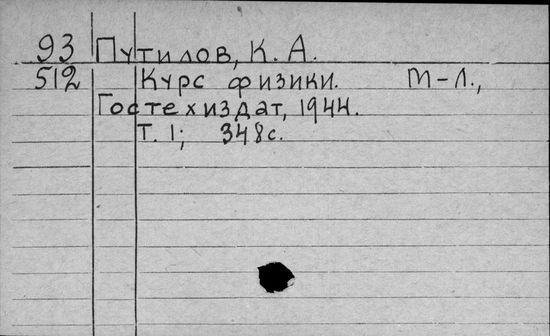 93 Путилов, К. А.
512 Курс физики. М-Л.,
Гостехиздат, 1944.
Т. 1; 348с.